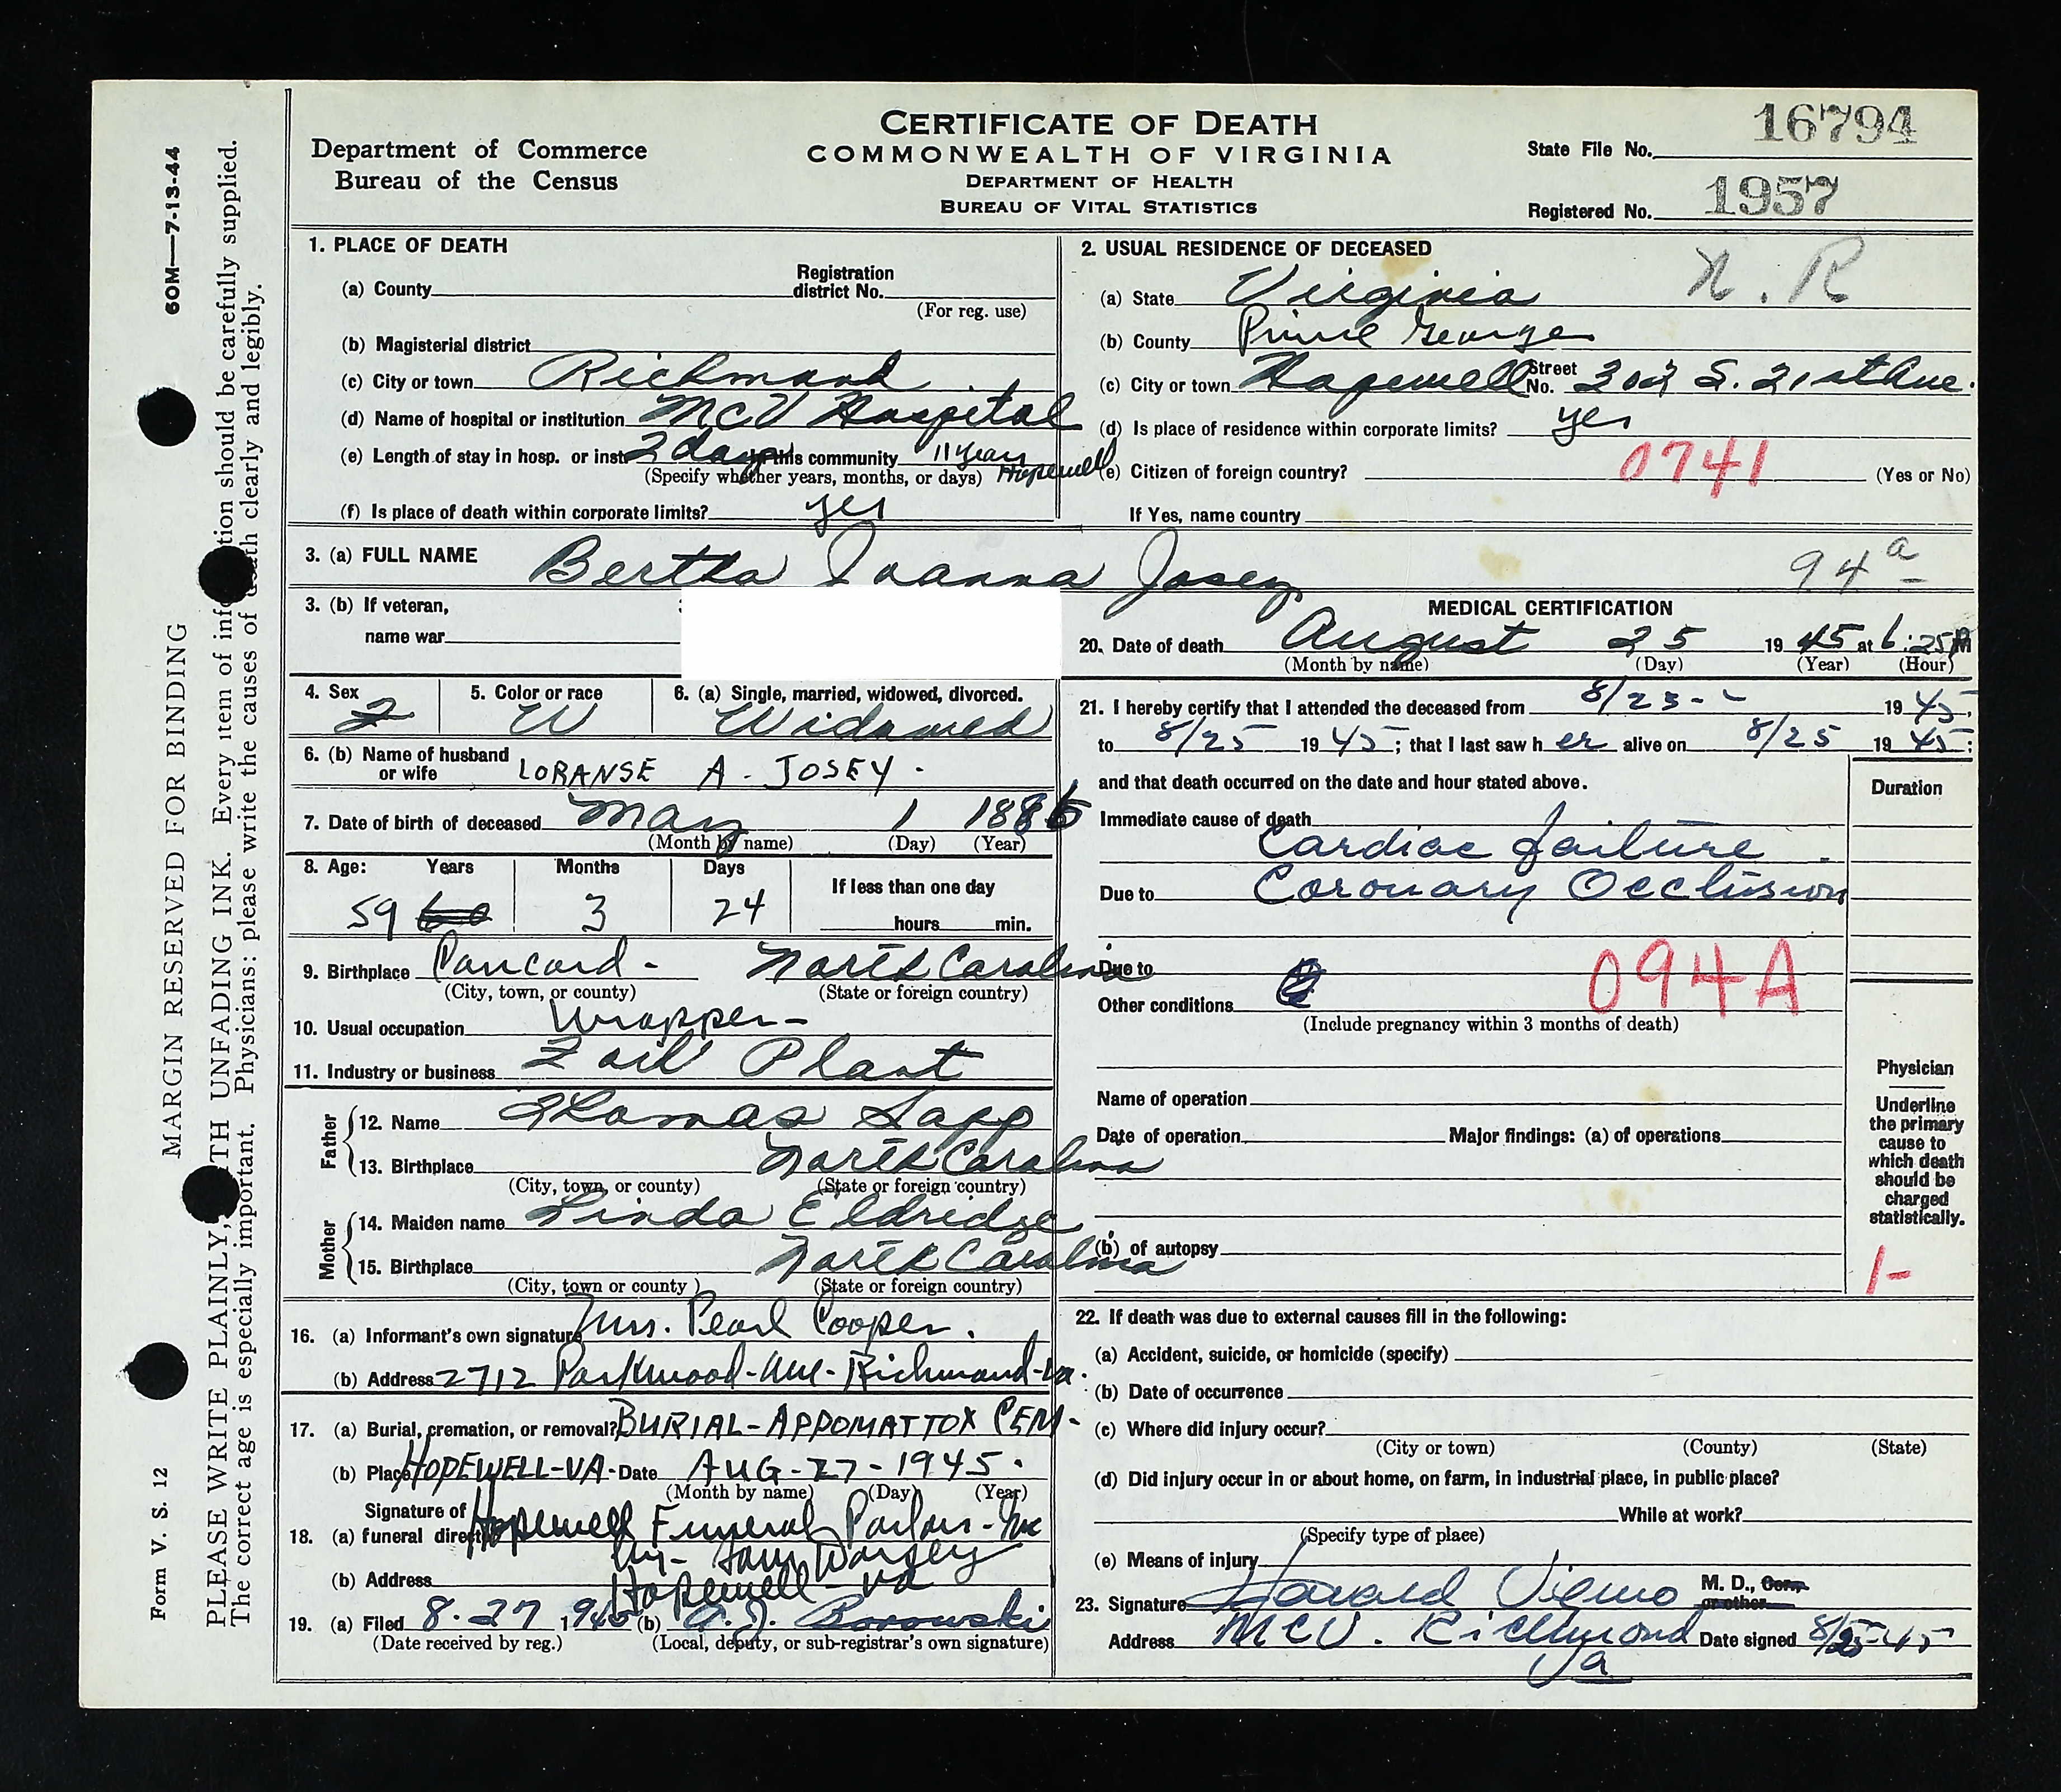 60M—7-13-44
MARGIN RESERVED FOR BINDING
PLEASE WRITE PLAINLY, TH UNFADING INK. Every item of info tion should be carefully supplied.
The correct age is especially important. Physicians: please write the causes of death clearly and legibly.
Form V. S. 12
CERTIFICATE OF DEATH
COMMONWEALTH OF VIRGINIA
DEPARTMENT OF HEALTH
BUREAU OF VITAL STATISTICS
Department of Commerce
Bureau of the Census
State File No. 16794
Registered No. 1957
1. PLACE OF DEATH
(a) County Registration district No.
(For reg. use)
(b) Magisterial district
(c) City or town Richmond
(d) Name of hospital or institution MCV Hospital
(e) Length of stay in hosp. or inst. 2 days this community 11 years Hopewell
(Specify whether years, months, or days)
(f) Is place of death within corporate limits? yes
2. USUAL RESIDENCE OF DECEASED N. R
(a) State Virginia
(b) County Prince George
(c) City or town Hopewell Street No. 302 S. 21st Ave.
(d) Is place of residence within corporate limits? yes
(e) Citizen of foreign country? 0741 (Yes or No)
If Yes, name country
3. (a) FULL NAME Bertha Joanna Josey 94a
3. (b) If veteran,
name war
4. Sex F
5. Color or race W
6. (a) Single, married, widowed, divorced. Widowed
6. (b) Name of husband or wife LORANSE A. JOSEY.
7. Date of birth of deceased May 1 1886
(Month by name) (Day) (Year)
8. Age: Years Months Days If less than one day
59 60 3 24 hours min.
9. Birthplace Concord - North Carolina
(City, town, or county) (State or foreign country)
10. Usual occupation Wrapper -
11. Industry or business Foil Plant
Father
12. Name Thomas Sapp
13. Birthplace North Carolina
(City, town, or county) (State or foreign country)
Mother
14. Maiden name Linda Eldridge
15. Birthplace North Carolina
(City, town or county ) (State or foreign country)
16. (a) Informant's own signature Mrs. Pearl Cooper.
(b) Address 2712 Parkwood-Ave-Richmond-Va.
17. (a) Burial, cremation, or removal? BURIAL-APPOMATTOX CEM-
(b) Place HOPEWELL-VA- Date AUG-27-1945.
(Month by name) (Day) (Year)
Signature of
18. (a) funeral direct Hopewell Funeral Parlors-Inc
(b) Address Hopewell - Va
19. (a) Filed 8-27 1945 (b) A. J. Borowski
(Date received by reg.) (Local, deputy, or sub-registrar's own signature)
MEDICAL CERTIFICATION
20. Date of death August 25 1945 at 6:25
(Month by name) (Day) (Year) (Hour)
21. I hereby certify that I attended the deceased from 8/23-- 1945,
to 8/25 1945; that I last saw her alive on 8/25 1945;
and that death occurred on the date and hour stated above.
Duration
Immediate cause of death
Cardiac failure
Due to Coronary Occlusion
Due to
094A
Other conditions
(Include pregnancy within 3 months of death)
Name of operation
Date of operation Major findings: (a) of operations
(b) of autopsy
Physician
Underline
the primary
cause to
which death
should be
charged
statistically.
1-
22. If death was due to external causes fill in the following:
(a) Accident, suicide, or homicide (specify)
(b) Date of occurrence
(c) Where did injury occur?
(City or town) (County) (State)
(d) Did injury occur in or about home, on farm, in industrial place, in public place?
While at work?
(Specify type of place)
(e) Means of injury
23. Signature M. D., Corn. or other
Address MCV. Richmond Va Date signed 8/25-45